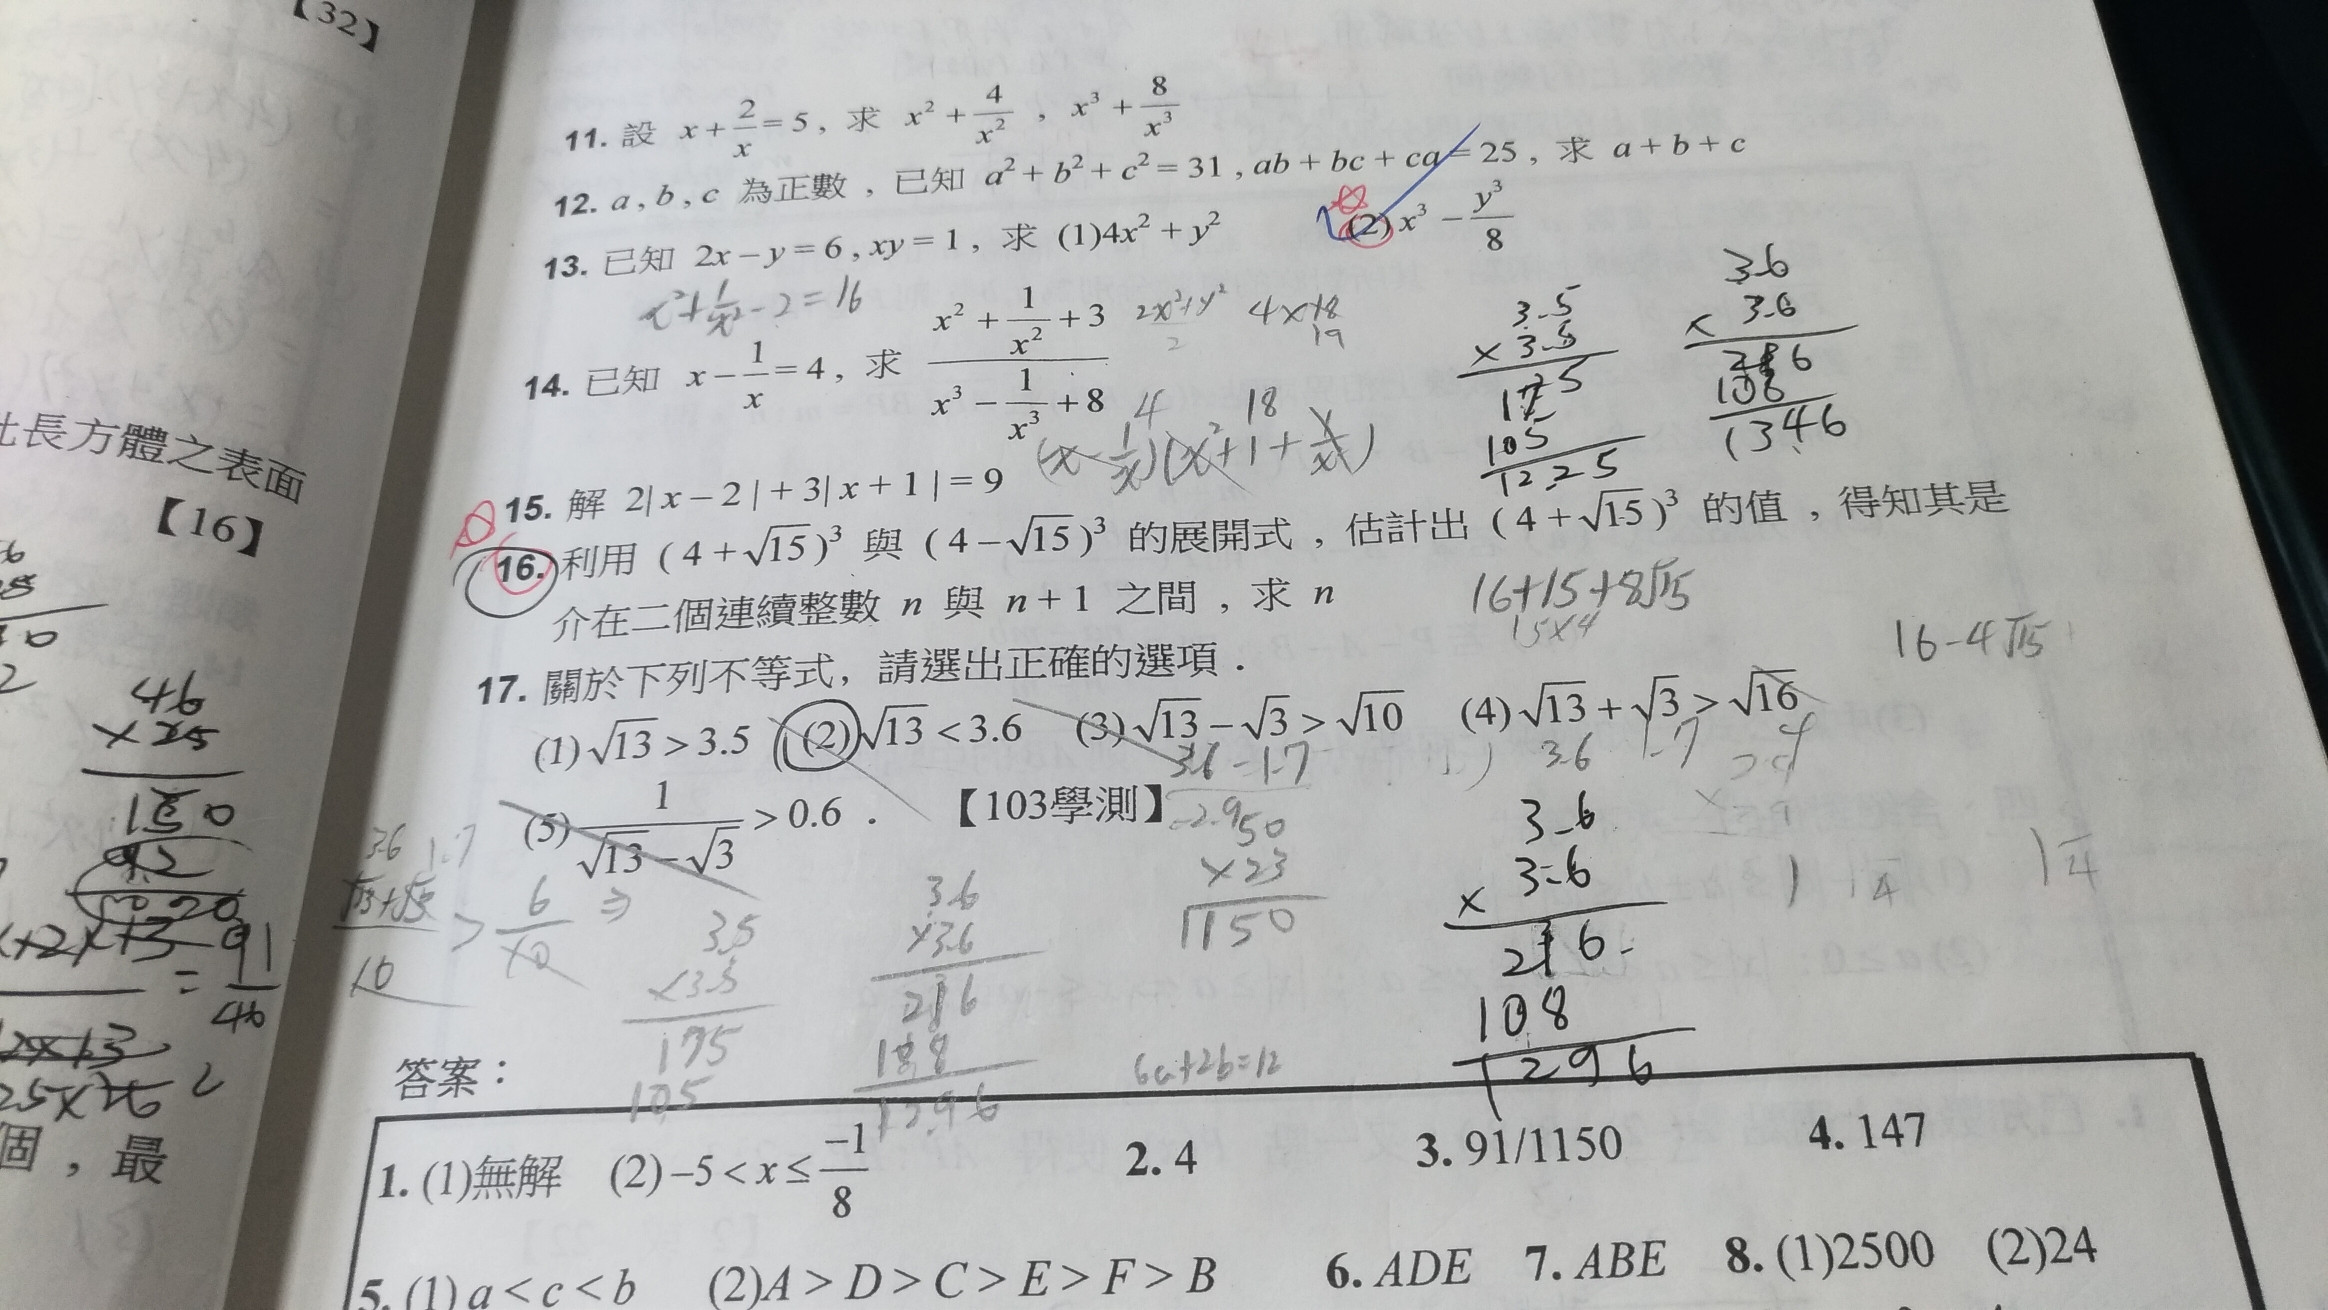 【32】
11. 設 x + 2/x = 5 , 求 x² + 4/x² , x³ + 8/x³
12. a , b , c 為正數 , 已知 a² + b² + c² = 31 , ab + bc + ca = 25 , 求 a + b + c
13. 已知 2x − y = 6 , xy = 1 , 求 (1)4x² + y² (2) x³ − y³/8
x² + 1/x² - 2 = 16
14. 已知 x − 1/x = 4 , 求 (x² + 1/x² + 3)/(x³ − 1/x³ + 8)
4 18
(x - 1/x)(x² + 1 + 1/x²)
3.5
× 3.5
175
105
12.25
3.6
× 3.6
216
108
1346
15. 解 2| x − 2 | + 3| x + 1 | = 9
16. 利用 ( 4 + √15 )³ 與 ( 4 − √15 )³ 的展開式 , 估計出 ( 4 + √15 )³ 的值 , 得知其是
介在二個連續整數 n 與 n + 1 之間 , 求 n
16+15+8√15
15×4
16-4√15
17. 關於下列不等式, 請選出正確的選項 .
(1) √13 > 3.5 (2) √13 < 3.6 (3) √13 − √3 > √10 (4) √13 + √3 > √16
3.6 - 1.7
3.6 1.7 > 4
(5) 1/(√13 − √3) > 0.6 . 【103學測】
3.6 1.7
√13+√3/10 > 6/10 ⇒
3.5
×3.5
175
105
3.6
×3.6
216
108
1296
50
×23
1150
3.6
× 3.6
216
108
1296
6a+2b=12
此長方體之表面
【16】
46
×25
92
= 91/46
個 , 最
答案 :
1. (1)無解 (2) −5 < x ≤ −1/8 2. 4 3. 91/1150 4. 147
5. (1) a < c < b (2)A > D > C > E > F > B 6. ADE 7. ABE 8. (1)2500 (2)24